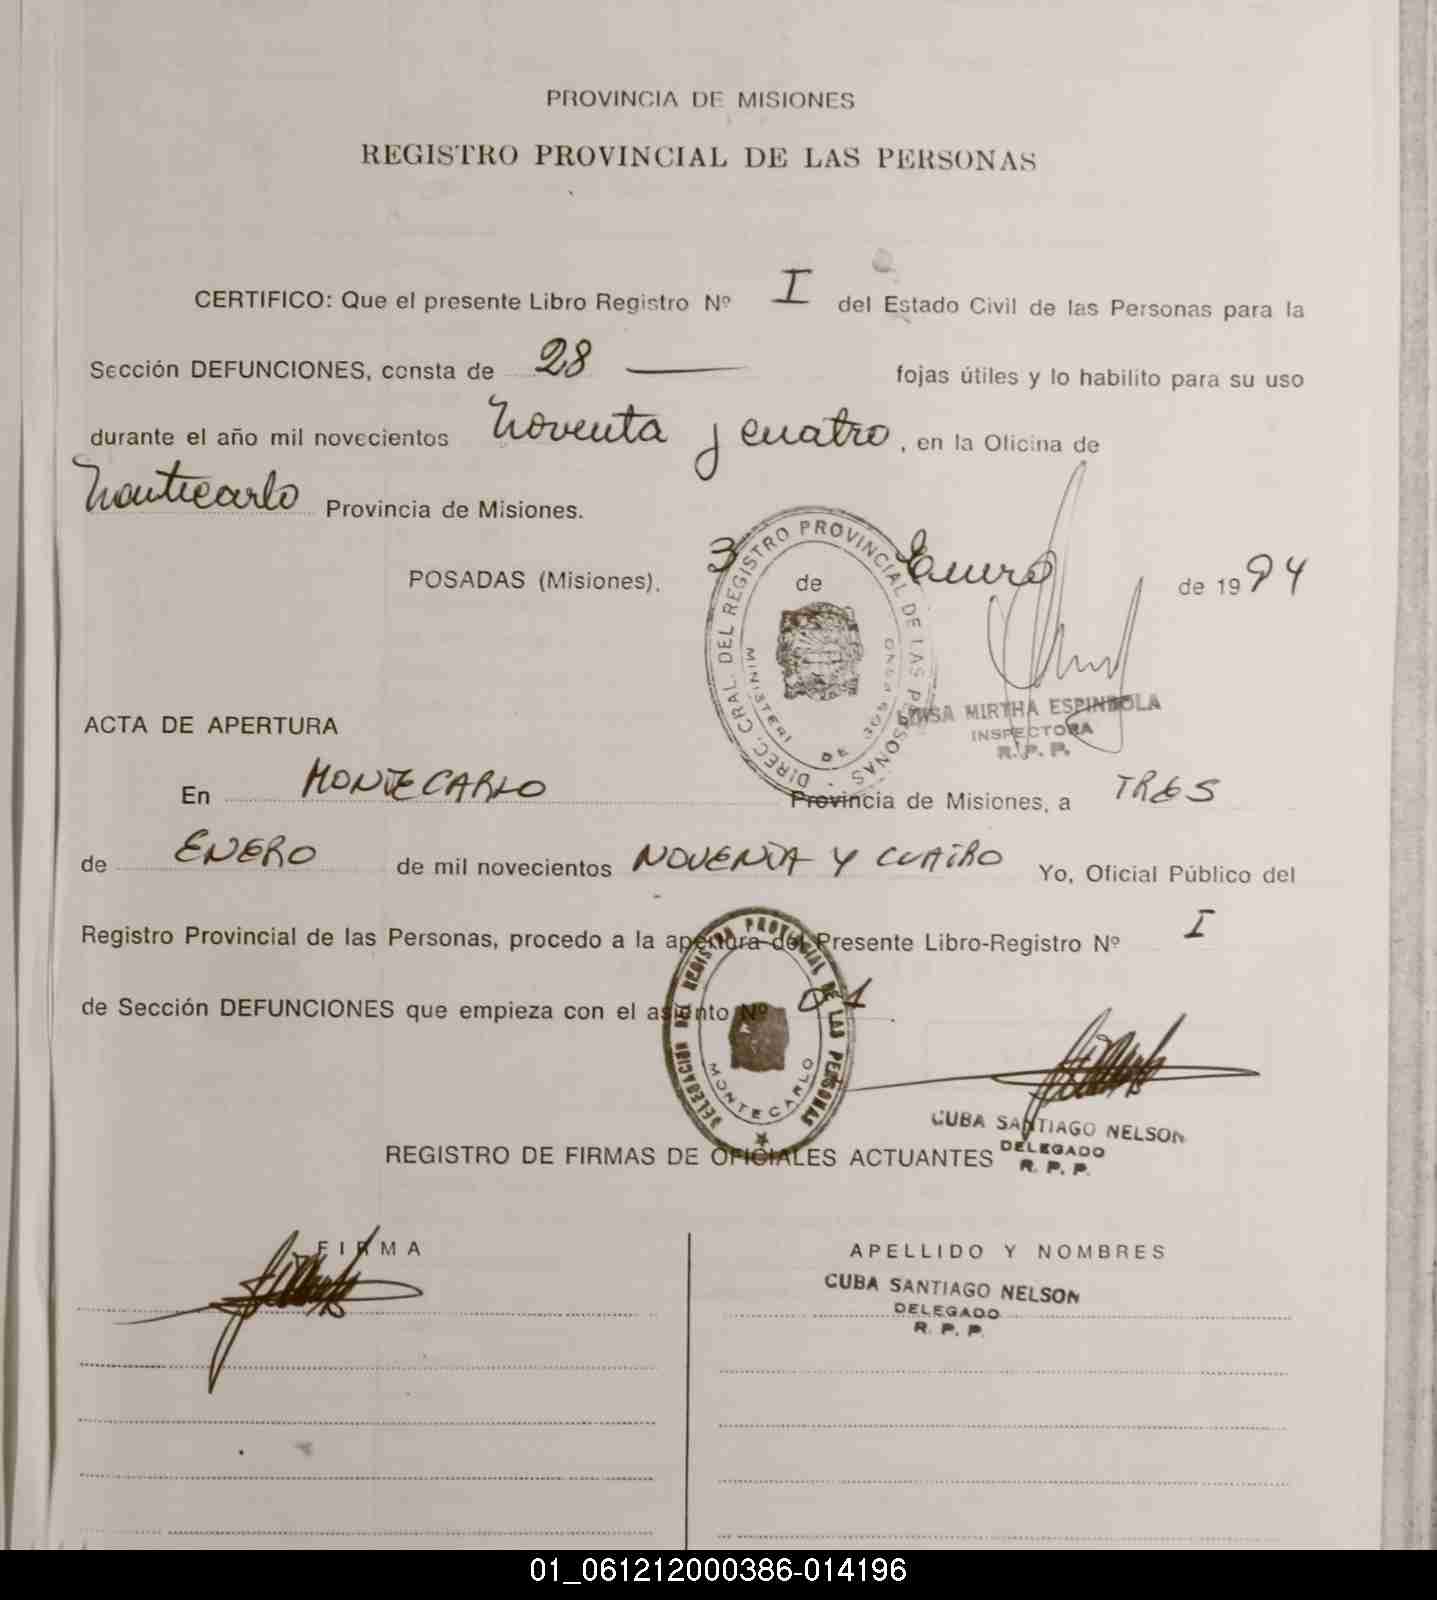 PROVINCIA DE MISIONES
REGISTRO PROVINCIAL DE LAS PERSONAS
CERTIFICO: Que el presente Libro Registro Nº I del Estado Civil de las Personas para la
Sección DEFUNCIONES, consta de 28 — fojas útiles y lo habilito para su uso
durante el año mil novecientos Noventa y cuatro, en la Oficina de
Montecarlo Provincia de Misiones.
POSADAS (Misiones), 3 de Enero de 1994
DIREC. GRAL. DEL REGISTRO PROVINCIAL DE LAS PERSONAS
MIRTHA ESPINDOLA
INSPECTORA
R. P. P.
ACTA DE APERTURA
En MONTECARLO Provincia de Misiones, a TRES
de ENERO de mil novecientos NOVENTA Y CUATRO Yo, Oficial Público del
Registro Provincial de las Personas, procedo a la apertura del Presente Libro-Registro Nº I
de Sección DEFUNCIONES que empieza con el asiento Nº 01
DELEGACION DEL REGISTRO PROVINCIAL DE LAS PERSONAS
MONTECARLO
CUBA SANTIAGO NELSON
DELEGADO
R. P. P.
REGISTRO DE FIRMAS DE OFICIALES ACTUANTES
FIRMA APELLIDO Y NOMBRES
CUBA SANTIAGO NELSON
DELEGADO
R. P. P.
01_061212000386-014196